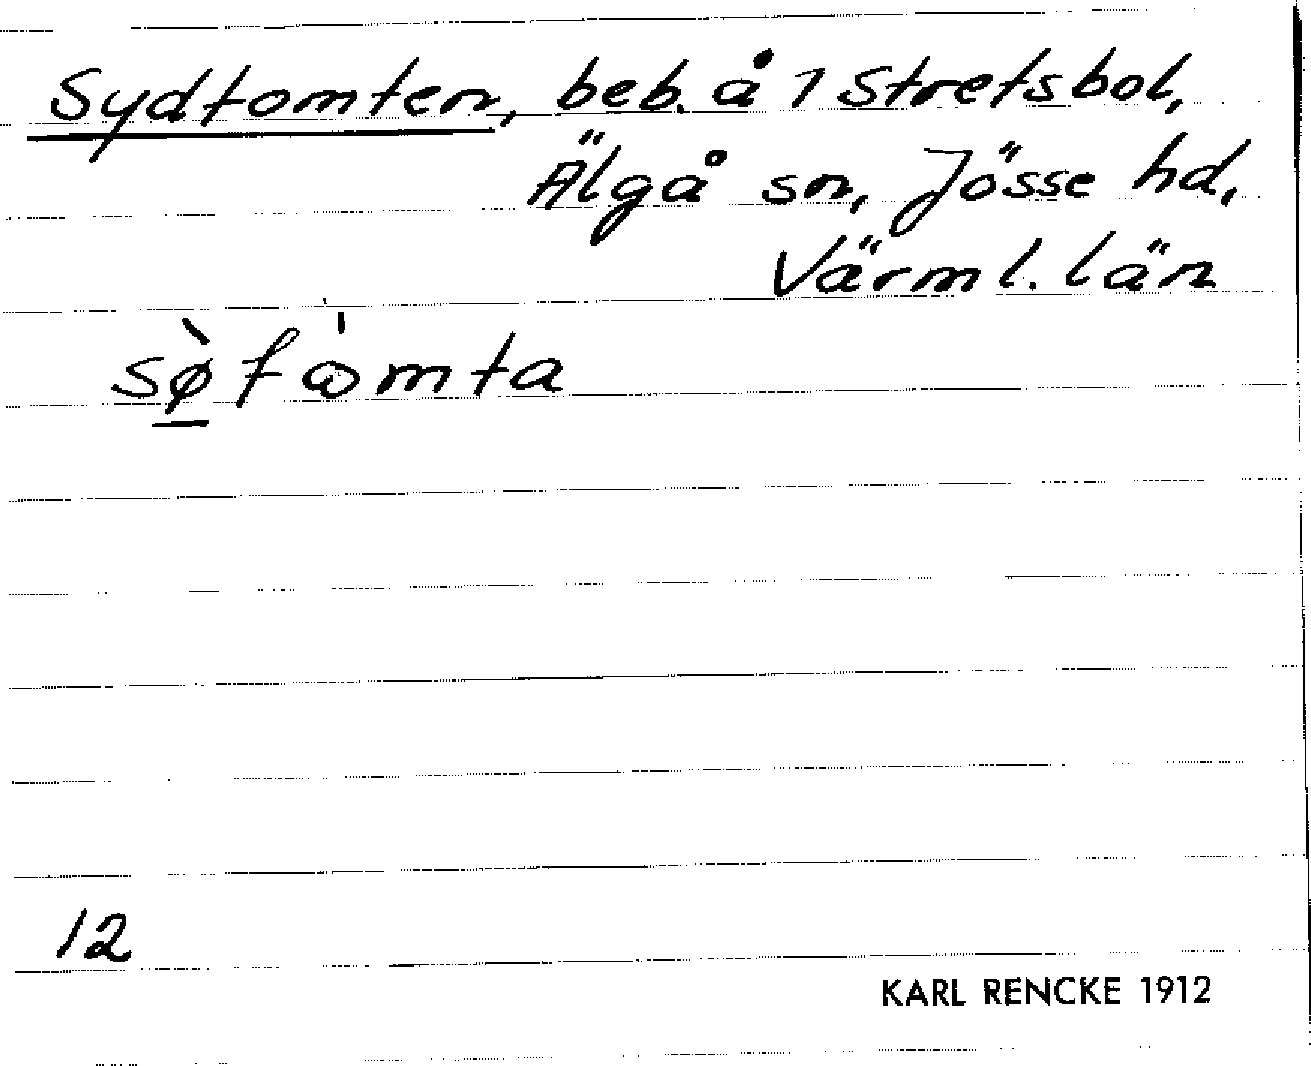 Sydtomten, beb. å 1 Stretsbol,
Älgå sn, Jösse hd,
Värml. län
12
KARL RENCKE 1912